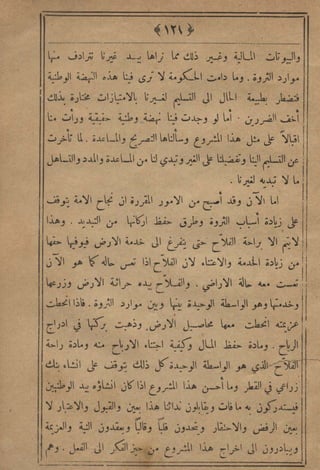 ﴿ ١٢١ ﴾
والبيوتات المالية وغير ذلك مما نراها بيد غيرنا تترادف منها
موارد الثروة . وما دامت الحكومة لا ترى فينا هذه النهضة الوطنية
فتضطر بطبيعة الحال الى التسليم لغيرنا بالامتيازات مختارة بذلك
أخف الضررين . أما لو وجدت فينا نهضة وطنية حقيقية ورأت منا
اقبالاً على مثل هذا المشروع وسألناها التصريح والمساعدة . لما تأخرت
عن التسليم الينا وتفضيلنا على الغير وتبدي لنا من المساعدة والمدد والتساهل
ما لا تبديه لغيرنا .
اما الآن وقد أصبح من الامور المقررة ان نجاح الامة يتوقف
على زيادة أسباب الثروة وطرق حفظ اركانها من التبديد . وهذا
لايتم الا براحة الفلاح حتى يتفرغ الى خدمة الارض فيوفيها حقها
من زيادة الخدمة والاعتناء لان الفلاح اذا تعس حاله كما هو الآن
تعست معه حالة الاراضي . والفلاح بيده حراثة الارض وزرعها
وخدمتها وهو الواسطة الوحيدة بينها وبين موارد الثروة . فاذا انحطت
عزيمته انحطت معها محاصيل الارض وذهبت بركتها في ادراج
الرياح . ومادة حفظ المال وكيفية اجتناء الارباح منه ومادة راحة
الفلاح الذي هو الواسطة الوحيدة كل ذلك يتوقف على انشاء بنك
زراعي في القطر وما أحسن هذا المشروع اذا كان انشاؤه بيد الوطنيين
فيستدركون به ما فات ويقابلون ندائنا هذا بعين والقبول والاعتبار لا
بعين الرفض والاحتقار ويتحدون قلباً وقالباً ويعقدون النية والعزيمة
ويبادرون الى اخراج هذا المشروع من حيز الفكر الى الفعل . وهم